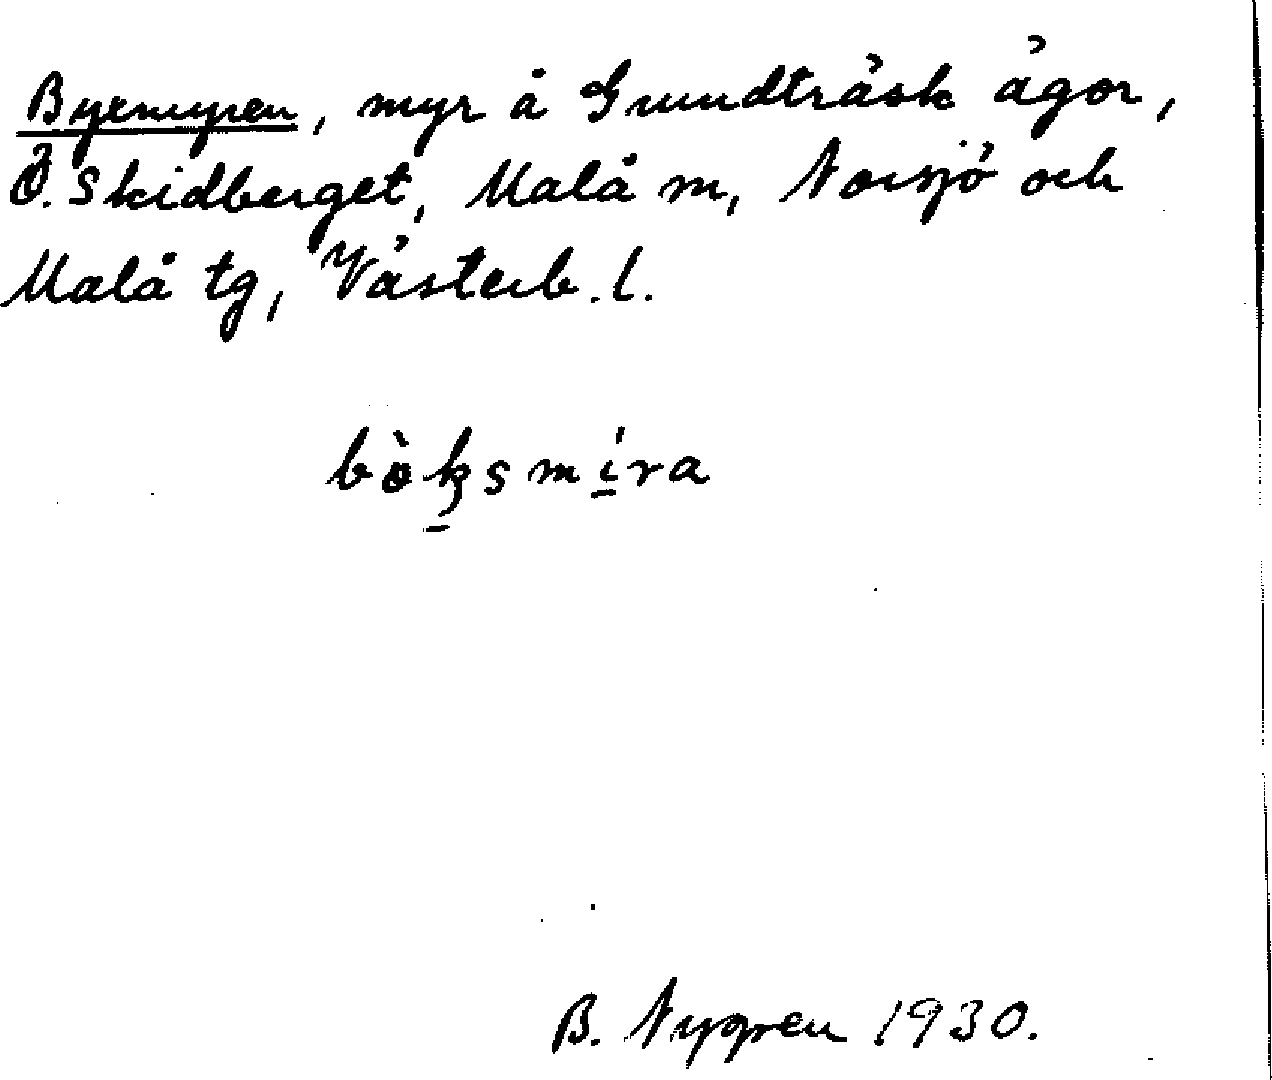 Byxmyren, myr å Grundträsk ägor,
Ö. Skidberget, Malå m, Norsjö och
Malå tg, Västerb. l.
bòksmíra
B. Nygren 1930.